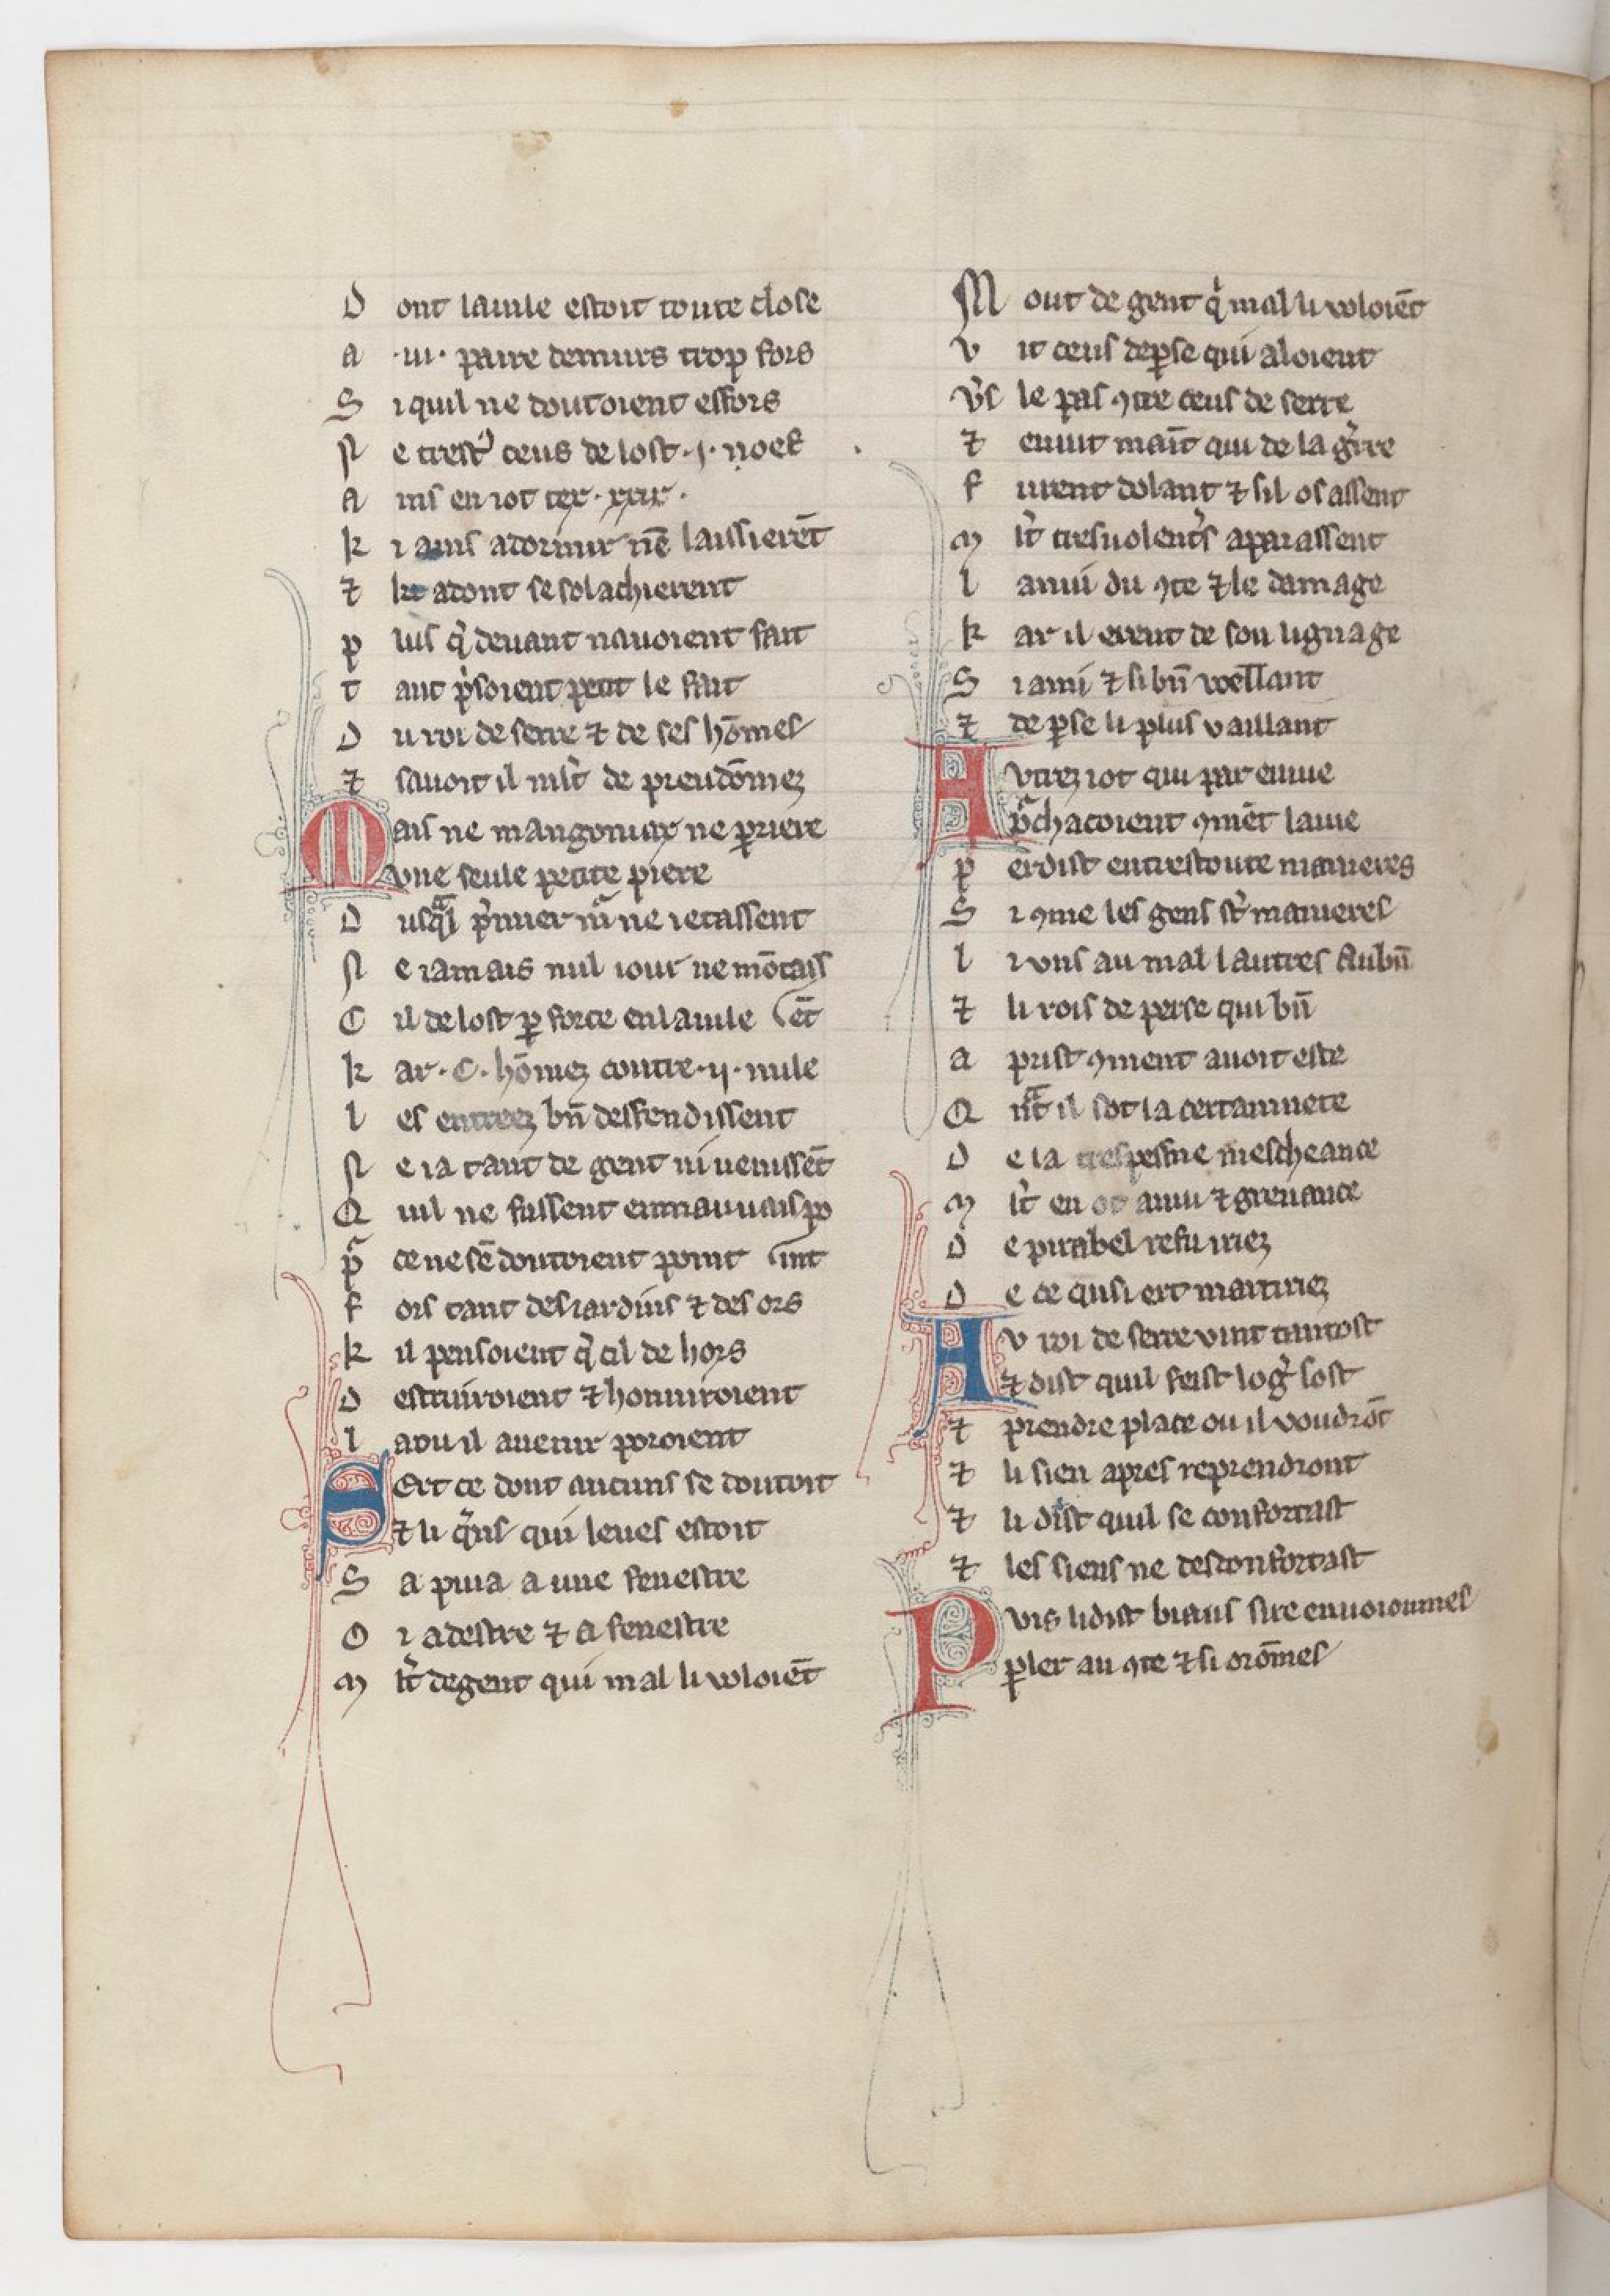 D ont lauile estoit toute close
a ·iii· paire demurs trop fors
S i quil ne doutoient esfors
N e trest᷒ ceus de lost ·j· noef
A ins en iot tex ·xxix·
k i ains adormir nē laissierēt
⁊ adont se solachierent
p lus q̇ deuant nauoient fait
t ant p̍soient petit le fait
D u roi de serre ⁊ de ses hōmes
⁊ sauoit il mlt̍ de preudōmez
Mais ne mangoniax ne ꝑriere
vne seule petite piere
D usqͣl p̍mier ne ietassent
N e iamais nul iour ne mōtaiss
C il de lost ꝑ force enlauile ēt
k ar ·C· hōmez contre ·ij· mile
l es entreez bn̄ deffendissent
N e ia tant de gent ni uenissēt
Q uil ne fussent enmauuais po
p̄ ce ne sē doutoient point int
f ors tant des iardins ⁊ des ors
k il pensoient q̇ cil de hors
D estruiroient ⁊ honniroient
l aou il auenir poroient
Ert ce dont aucuns se doutoit
⁊ li q̄ns qui leues estoit
S apuia a une fenestre
O i adestre ⁊ a senestre
M lt̍ degent qui mal li voloiēt
M out de gent q̍ mal li voloiēt
V it ceus deꝑse qui aloient
V̍s le pas ꝯtre ceus de serre
⁊ enuit maīt qui de la gͥre
f urent dolant ⁊ sil osassent
M lt̍ tresuolent̍s aparassent
l anui du ꝯte ⁊ le damage
k ar il erent de son lignage
S i ami ⁊ si bn̄ voellant
⁊ de ꝑse li plus vaillant
Avtrez iot qui par enuie
p̄chacoient ꝯmēt lauie
p erdist entrestoute manieres
S i ꝯme les gens st̍ manieres
l i vns au mal l autres Aubn̄
⁊ li rois de perse qui bn̄
a prist ꝯment auoit este
Q nͣt il sot la certainnete
D e la trespesme mescheance
M lt̍ en ot anui ⁊ greuance
D e pirabel refu iriez
D e ce qusi ert martiriez
Av roi de serre vint tantost
⁊ dist quil feist log̍ lost
⁊ prendre place ou il voudrōt
⁊ li sien apres reprendront
⁊ li dist quil se confortast
⁊ les siens ne desconfortast
Pvis lidist biaus sire enuoioumes
ꝑler au ꝯte ⁊ si orōmes